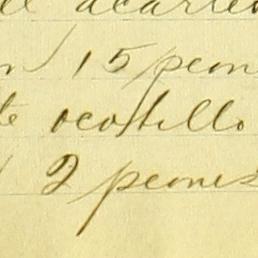 el acarreo
15 peon
te ocotillo
2 peones